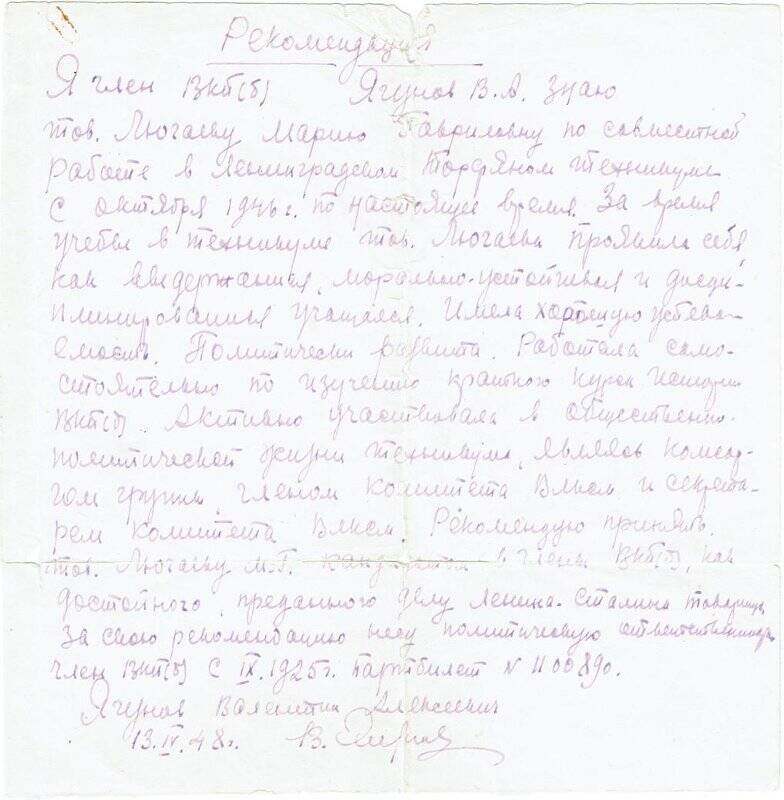 Рекомендация
Я член ВКП(б) Ягунов В.А. знаю
тов. Люгаеву Марию Гавриловну по совместной
работе в Ленинградском Торфяном техникуме
с октября 1946 г. по настоящее время. За время
учебы в техникуме тов. Люгаева проявила себя
как выдержанная, морально-устойчивая и дисци-
плинированная учащаяся. Имела хорошую успева-
емость. Политически развита. Работала само-
стоятельно по изучению краткого курса истории
ВКП(б). Активно участвовала в общественно-
политической жизни техникума, являясь комсор-
гом группы, членом комитета ВЛКСМ и секрета-
рем комитета ВЛКСМ. Рекомендую принять
тов. Люгаеву М.Г. кандидатом в члены ВКП(б), как
достойного, преданного делу Ленина-Сталина товарища
За свою рекомендацию несу политическую ответственность
член ВКП(б) с IX.1925г. партбилет № 1100890.
Ягунов Валентин Алексеевич
13.IV.48г.